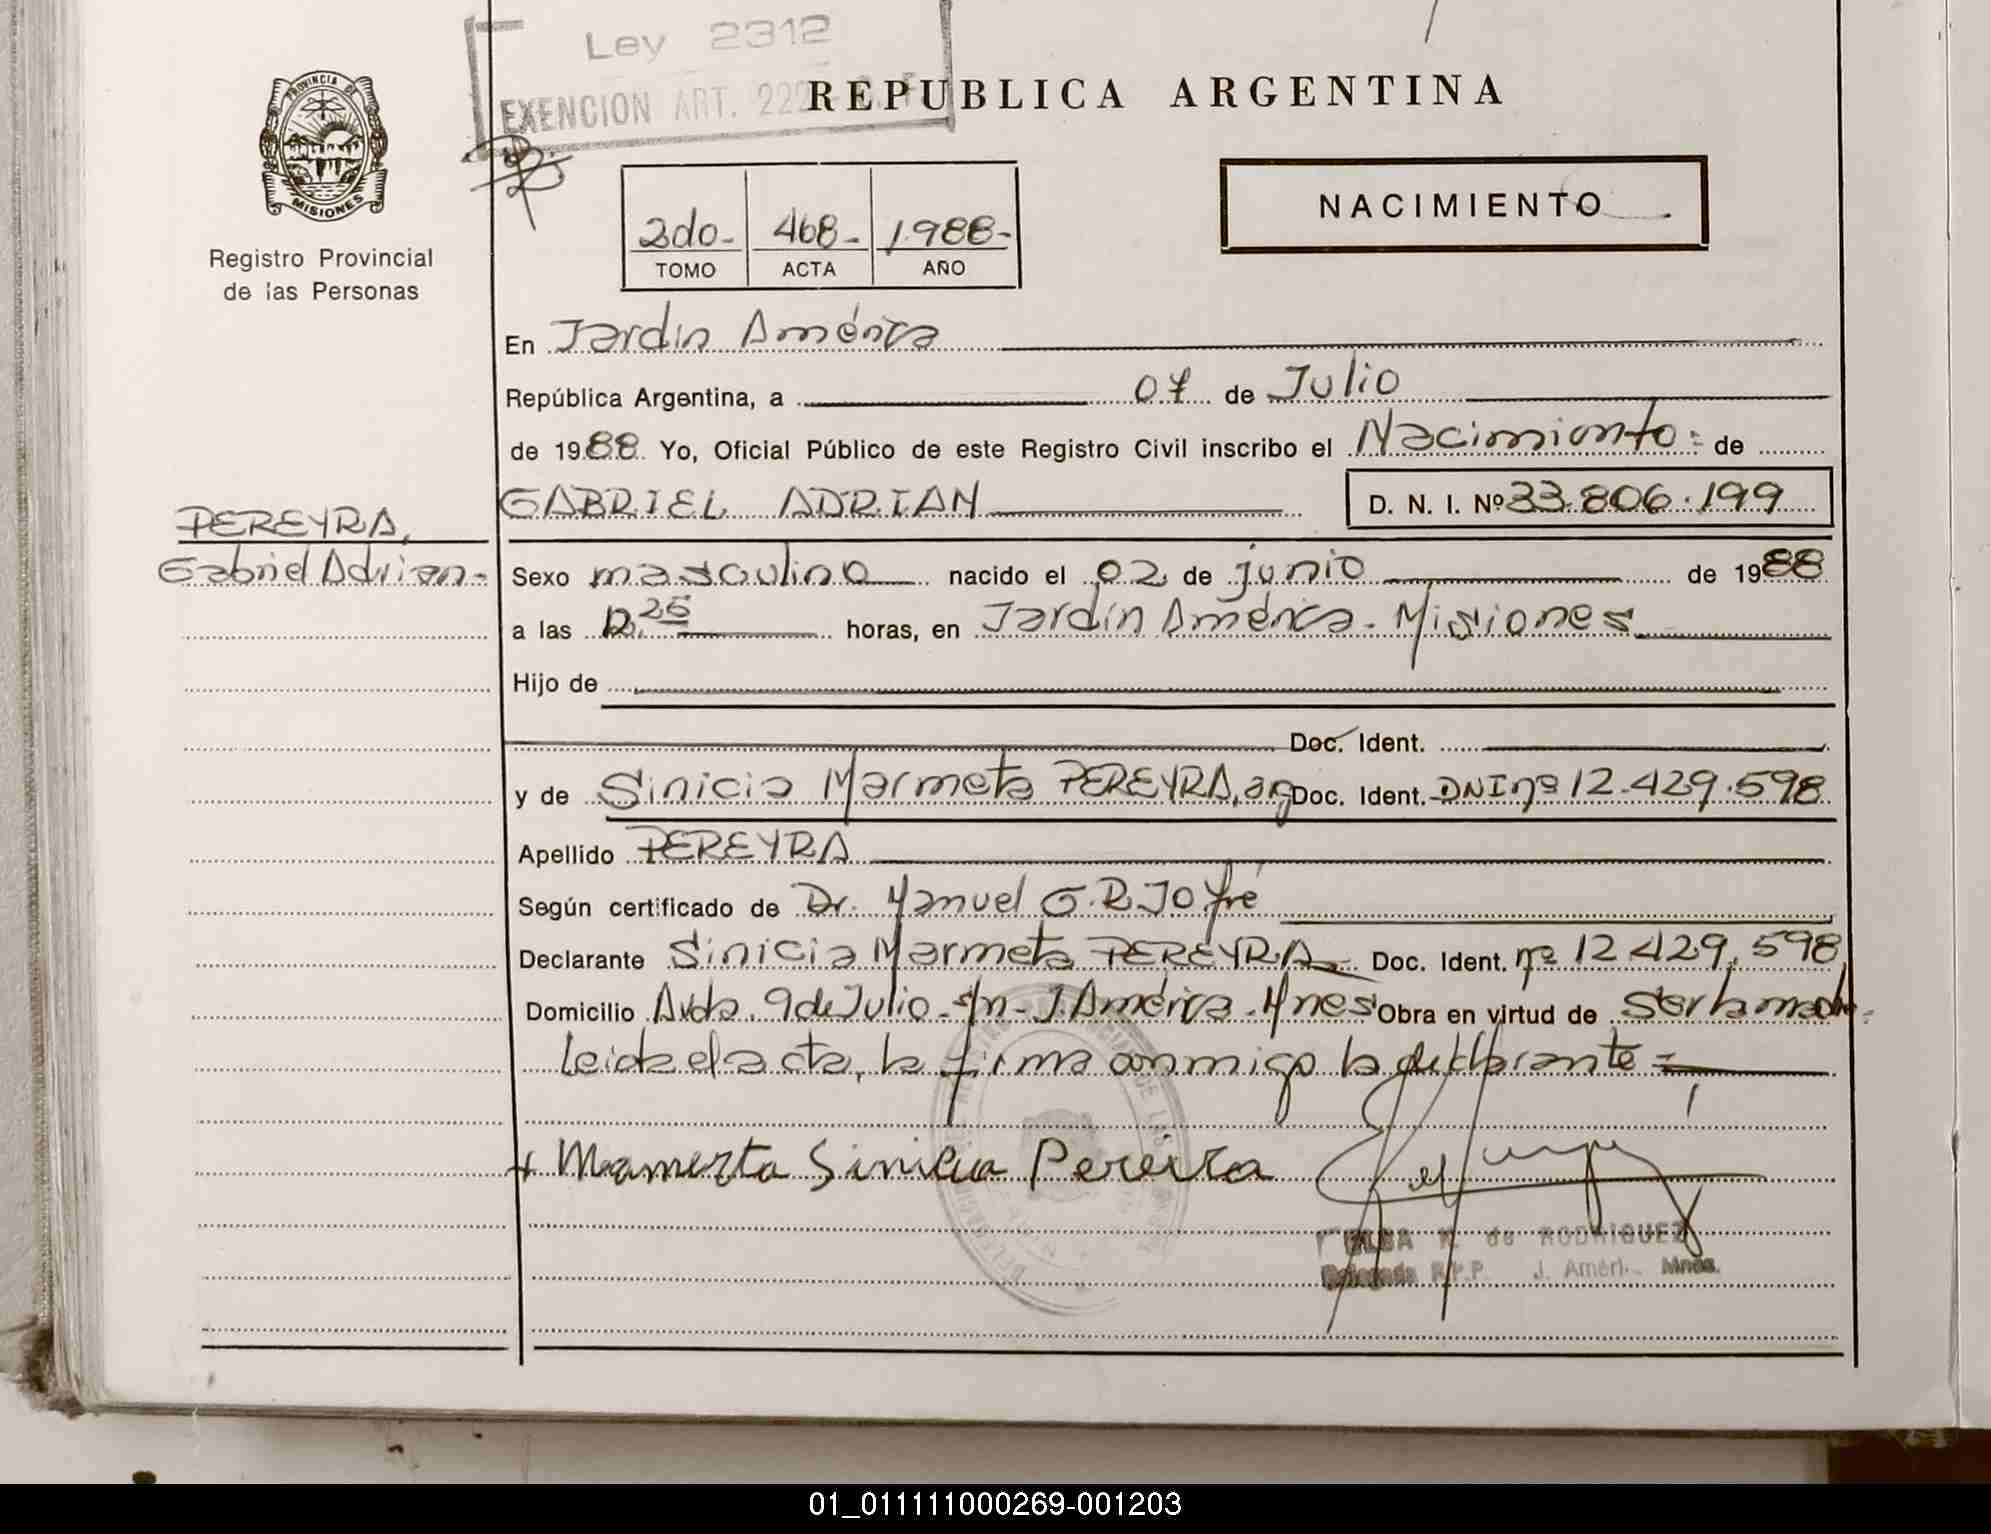 Ley 2312
EXENCION ART. 222
REPUBLICA ARGENTINA
PROVINCIA DE
MISIONES
Registro Provincial
de las Personas
2do- 468- 1988-
TOMO ACTA AÑO
NACIMIENTO
En Jardín América
República Argentina, a 07 de Julio
de 1988 Yo, Oficial Público de este Registro Civil inscribo el Nacimiento= de
GABRIEL ADRIAN D. N. I. Nº 33.806.199
PEREYRA,
Gabriel Adrian-
Sexo masculino nacido el 02 de junio de 1988
a las 12.25 horas, en Jardín América- Misiones
Hijo de
Doc. Ident.
y de Sinicia Marmeta PEREYRA, arg Doc. Ident. DNI nº 12.429.598
Apellido PEREYRA
Según certificado de Dr. Manuel G.R. JOfré
Declarante Sinicia Marmeta PEREYRA Doc. Ident. nº 12 429.598
Domicilio Avda. 9 de Julio- s/n- J. América- Mnes Obra en virtud de Ser la madre=
Leida el acta, la firma conmigo la declarante=
+ Mamerta Sinicia Pereira
ELBA N. de RODRIGUEZ
Delegada R.P.P. J. Améri. Mnes.
01_011111000269-001203